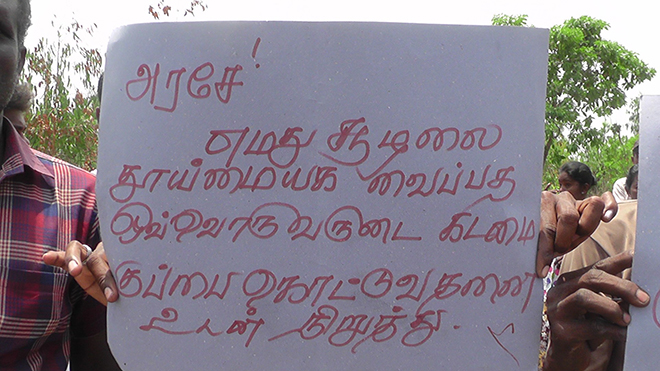 அரசே!
எமது சூழலை
தூய்மையக வைப்பத
ஒவ்வொருவருடை கடமை
குப்பை கொட்டுவதனை
உடன் நிறுத்து.